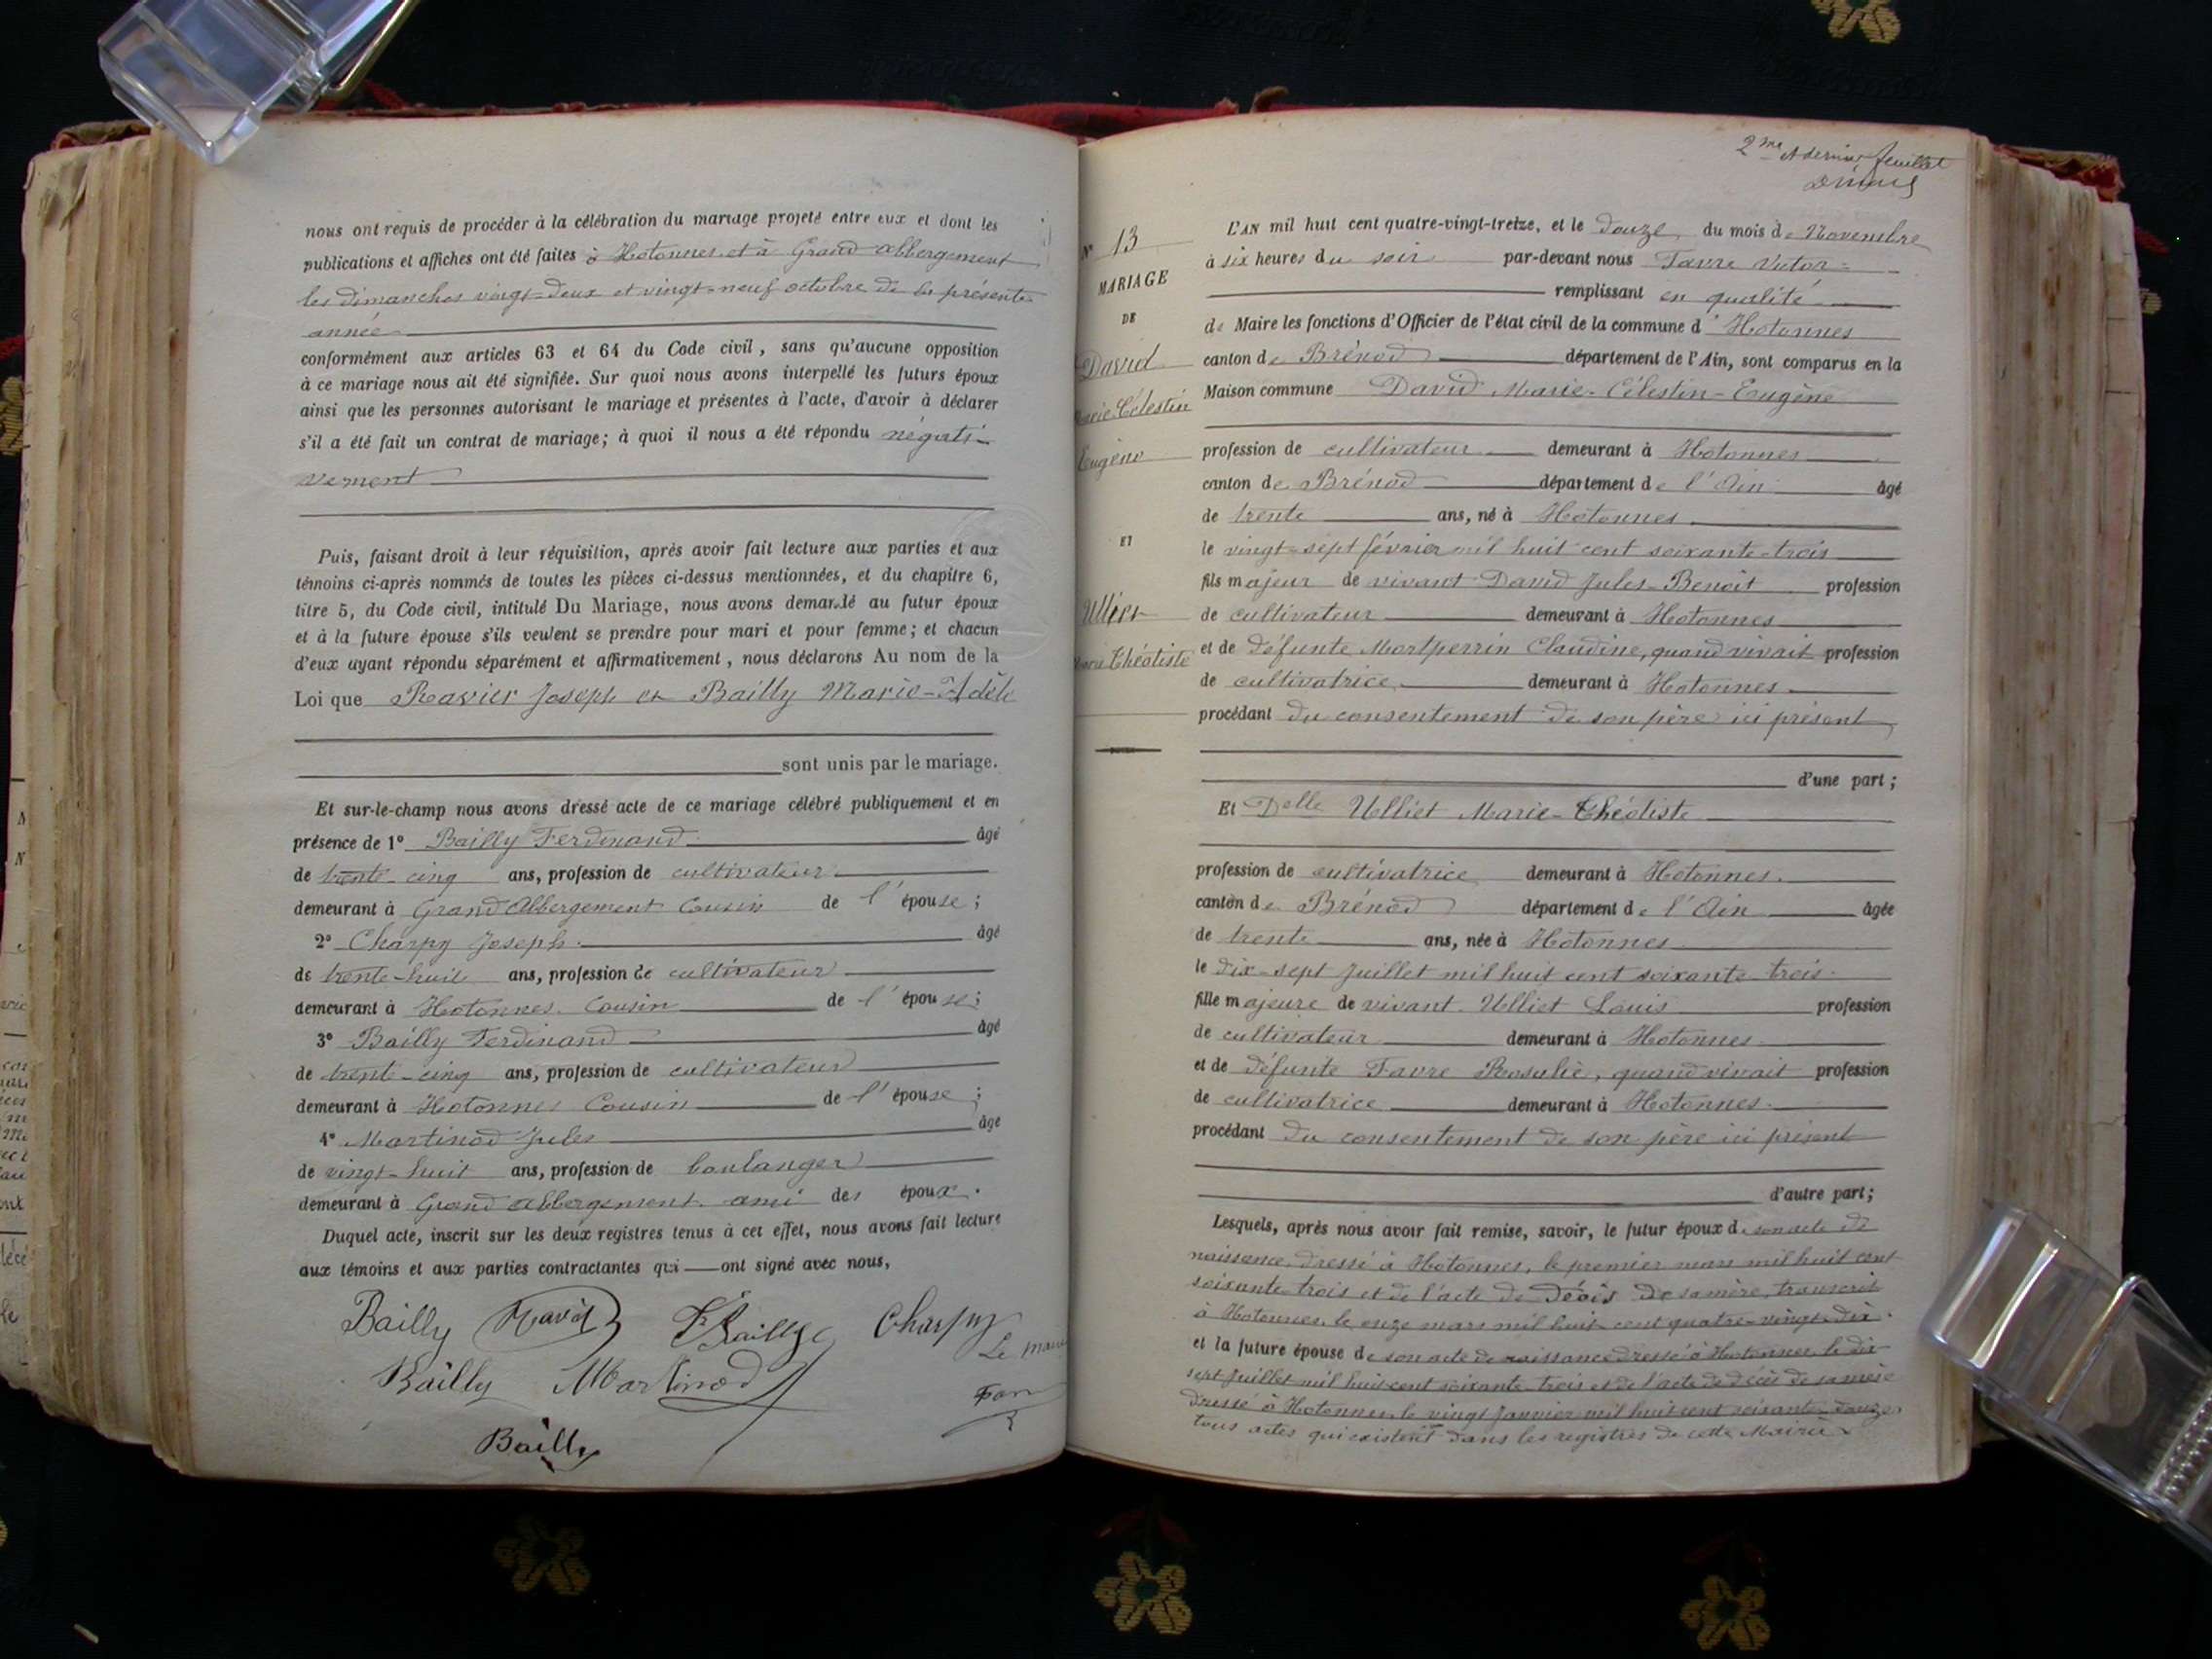 nous ont requis de procéder à la célébration du mariage projeté entre eux et dont les
publications et affiches ont été faites à Hotonnes et à Grand abbergement
les dimanches vingt-deux et vingt-neuf octobre de la présente
année
conformément aux articles 63 et 64 du Code civil, sans qu'aucune opposition
à ce mariage nous ait été signifiée. Sur quoi nous avons interpellé les futurs époux
ainsi que les personnes autorisant le mariage et présentes à l'acte, d'avoir à déclarer
s'il a été fait un contrat de mariage; à quoi il nous a été répondu négati-
vement
Puis, faisant droit à leur réquisition, après avoir fait lecture aux parties et aux
témoins ci-après nommés de toutes les pièces ci-dessus mentionnées, et du chapitre 6,
titre 5, du Code civil, intitulé Du Mariage, nous avons demandé au futur époux
et à la future épouse s'ils veulent se prendre pour mari et pour femme; et chacun
d'eux ayant répondu séparément et affirmativement, nous déclarons Au nom de la
Loi que Ravier Joseph et Bailly Marie-Adèle
sont unis par le mariage.
Et sur-le-champ nous avons dressé acte de ce mariage célébré publiquement et en
présence de 1° Bailly Ferdinand âgé
de trente-cinq ans, profession de cultivateur
demeurant à Grand Abbergement Cousin de l'épouse;
2° Charpy Joseph âgé
de trente-huit ans, profession de cultivateur
demeurant à Hotonnes Cousin de l'épouse;
3° Bailly Ferdinand âgé
de trente-cinq ans, profession de cultivateur
demeurant à Hotonnes Cousin de l'épouse;
4° Martinod Jules âgé
de vingt-huit ans, profession de boulanger
demeurant à Grand abbergement ami des époux.
Duquel acte, inscrit sur les deux registres tenus à cet effet, nous avons fait lecture
aux témoins et aux parties contractantes qui ont signé avec nous,
Bailly Ravier Bailly Charpy
Le maire
Bailly Martinod
Bailly
2me et dernier feuillet
N° 13
MARIAGE
DE
David
Marie Célestin
Eugène
ET
Ulliet
Marie Théotiste
L'AN mil huit cent quatre-vingt-treize, et le douze du mois de Novembre
à six heures du soir par-devant nous Favre Victor
remplissant en qualité
de Maire les fonctions d'Officier de l'état civil de la commune d'Hotonnes
canton de Brénod département de l'Ain, sont comparus en la
Maison commune David Marie-Célestin-Eugène
profession de cultivateur demeurant à Hotonnes
canton de Brénod département de l'Ain âgé
de trente ans, né à Hotonnes
le vingt-sept février mil huit cent soixante-trois
fils majeur de vivant David Jules-Benoit profession
de cultivateur demeurant à Hotonnes
et de défunte Montperrin Claudine, quand vivait profession
de cultivatrice demeurant à Hotonnes
procédant du consentement de son père ici présent
d'une part;
Et Delle Ulliet Marie-Théotiste
profession de cultivatrice demeurant à Hotonnes.
canton de Brénod département de l'Ain âgée
de trente ans, née à Hotonnes
le dix-sept Juillet mil huit cent soixante-trois
fille majeure de vivant Ulliet Louis profession
de cultivateur demeurant à Hotonnes
et de défunte Favre Rosalie, quand vivait profession
de cultivatrice demeurant à Hotonnes.
procédant du consentement de son père ici présent
d'autre part;
Lesquels, après nous avoir fait remise, savoir, le futur époux de son acte de
naissance dressé à Hotonnes, le premier mars mil huit cent
soixante trois et de l'acte de décès de sa mère, transcrit
à Hotonnes, le onze mars mil huit cent quatre-vingt-dix.
et la future épouse de son acte de naissance dressé à Hotonnes le dix
sept Juillet mil huit cent soixante-trois et de l'acte de décès de sa mère
dressé à Hotonnes, le vingt Janvier mil huit cent soixante-douze,
tous actes qui existent dans les registres de cette Mairie